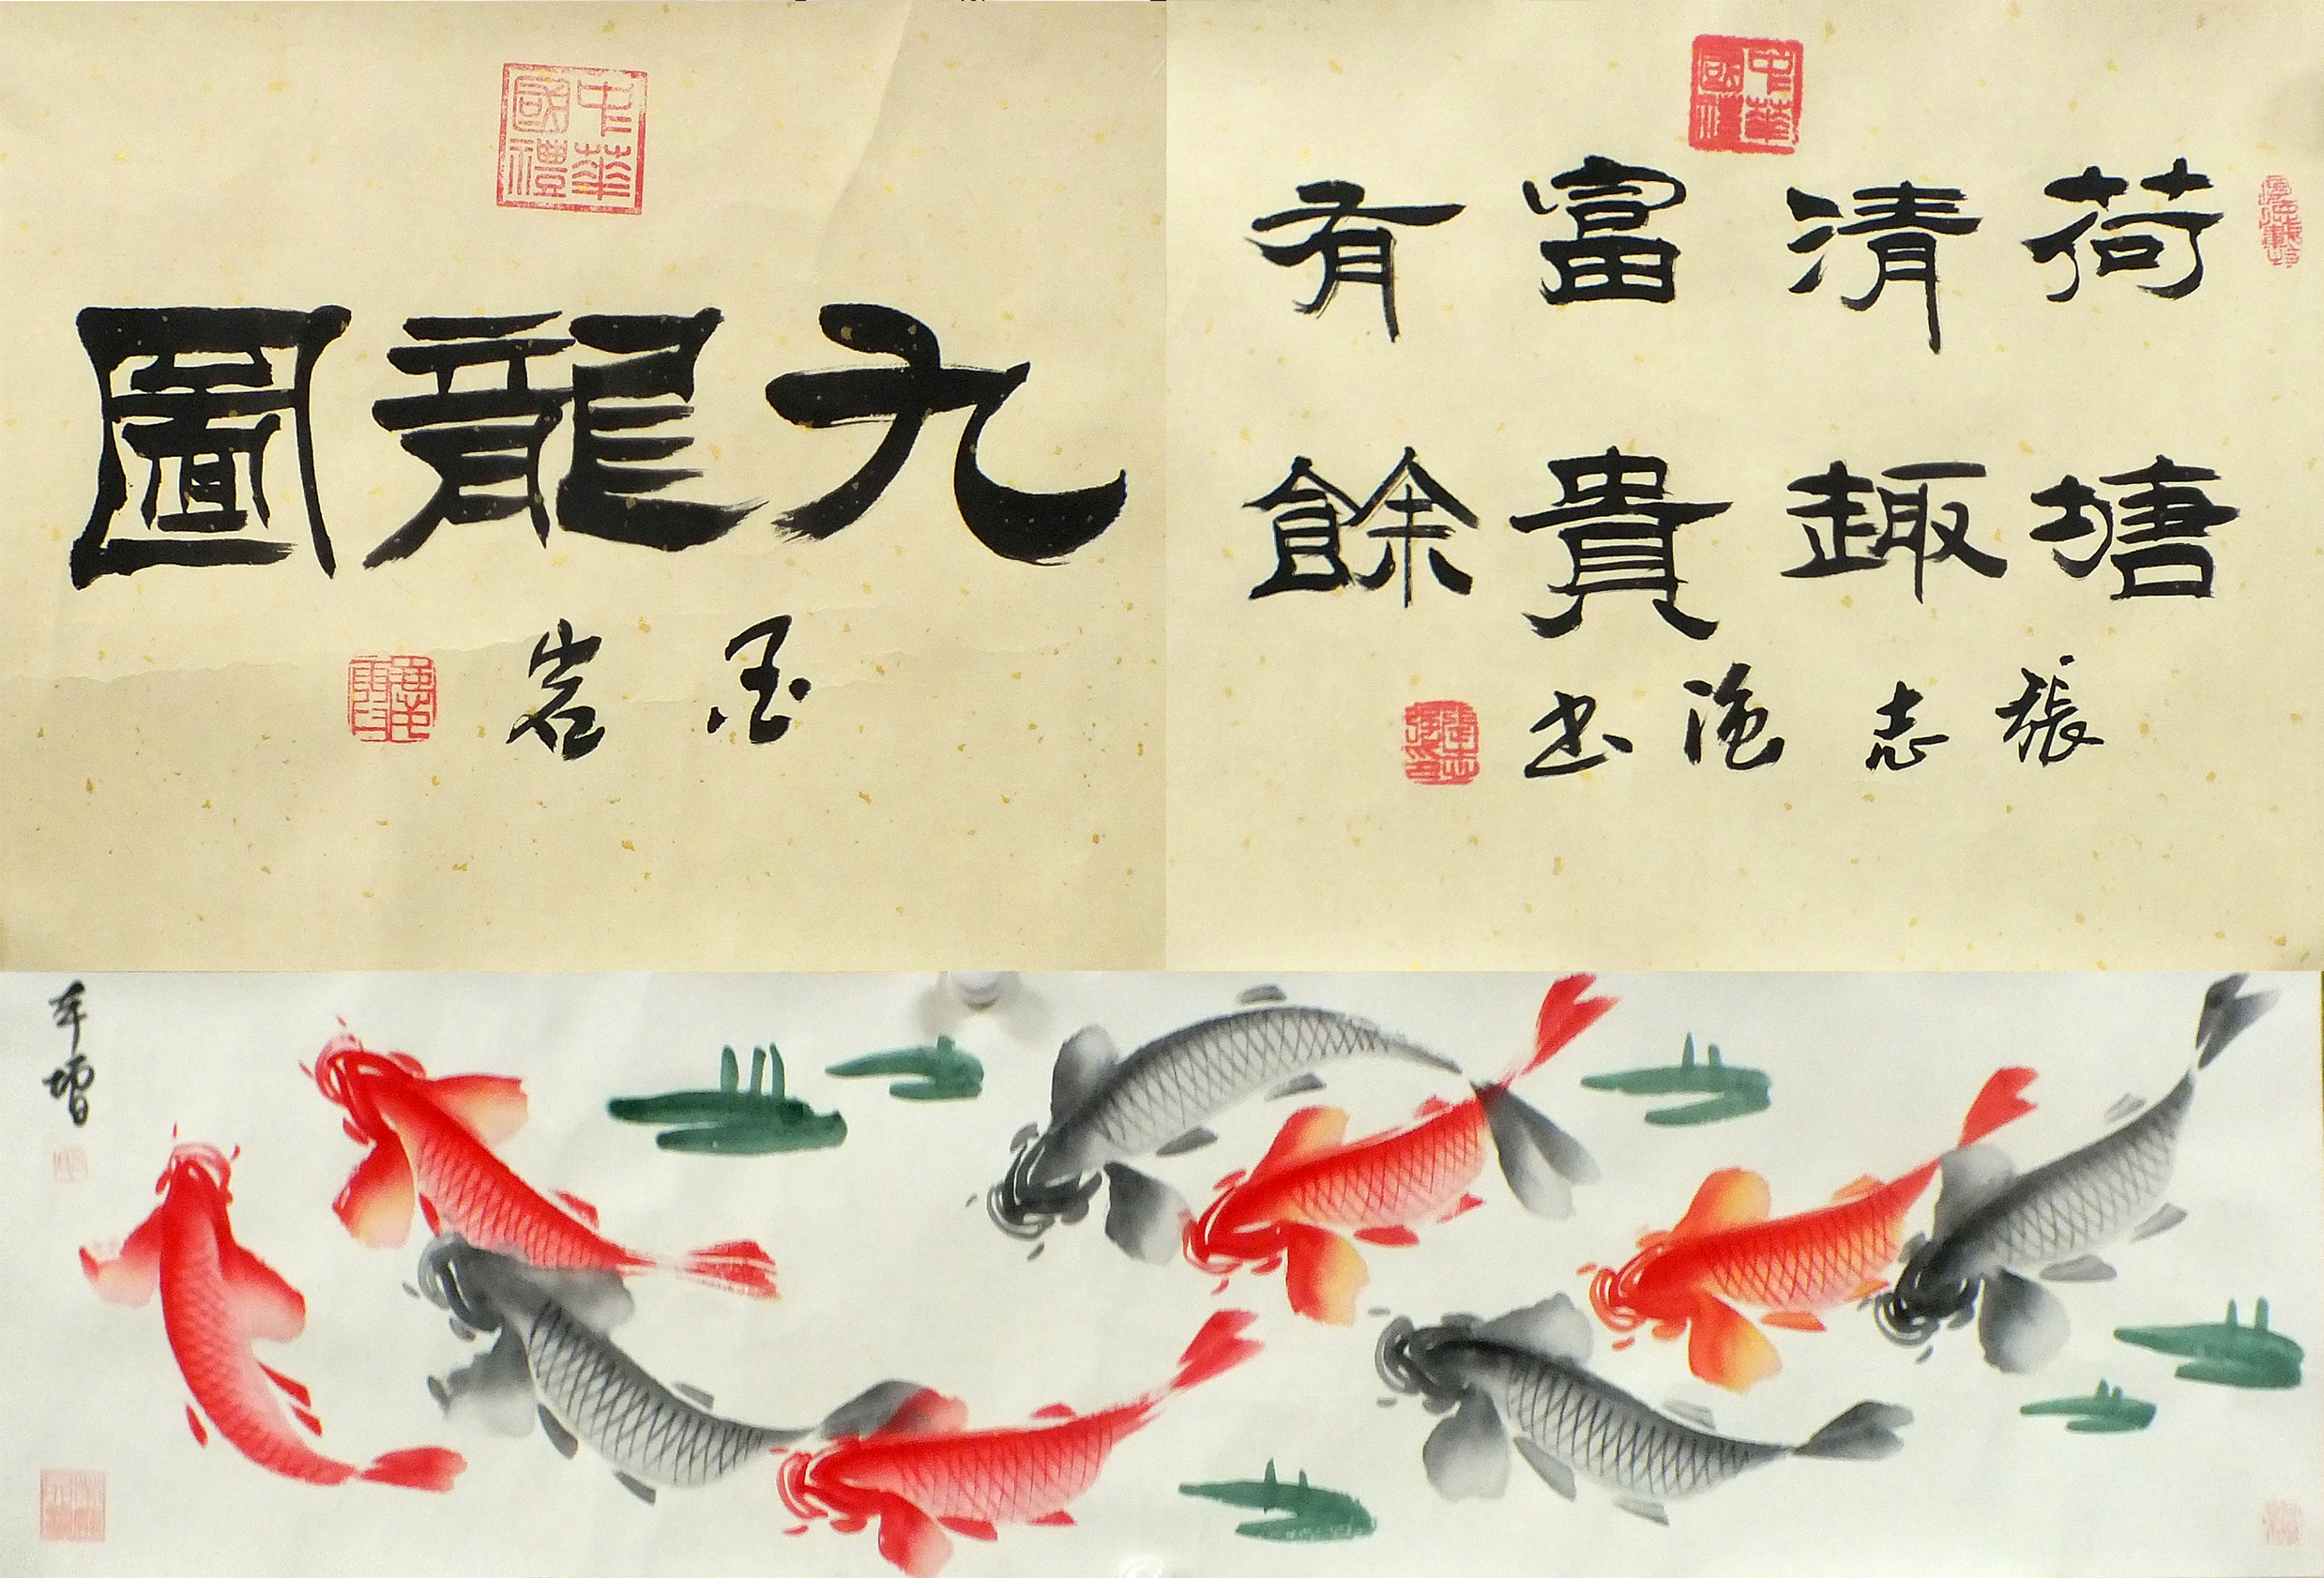 中華國禮
九龍圖
岩
中華國禮
荷塘
清趣
富貴
有餘
張志書